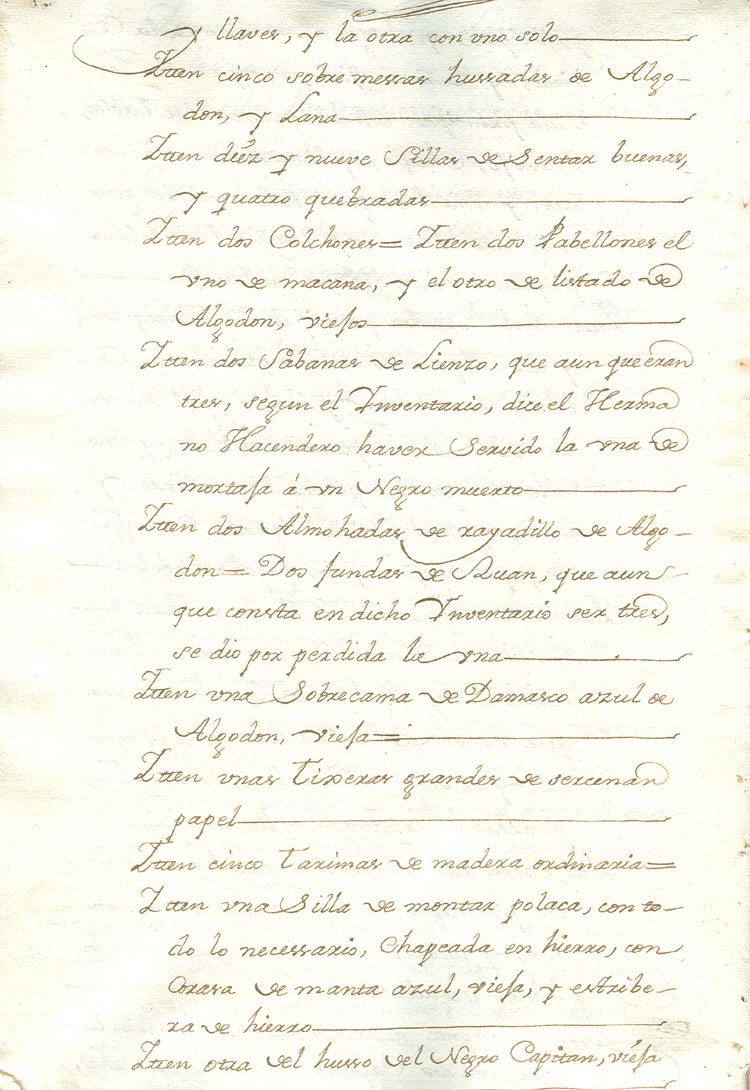 y llaves, y la otra con vno solo
Itten cinco sobre messas hussadas de Algo-
don, y Lana
Itten diéz y nueve Sillas de Sentar buenas,
y quatro quebradas
Itten dos Colchones= Itten dos Pabellones el
vno de macana, y el otro de listado de
Algodon, viejos
Itten dos Sabanas de Lienzo, que aun que eran
tres, segun el Inventario, dice el Herma
no Hacendero haver Servido la vna de
mortaja á vn Negro muerto
Itten dos Almohadas de rayadillo de Algo-
don= Dos fundas de Ruan, que aun
que consta en dicho Inventario ser tres,
se dio por perdida la vna
Itten vna Sobrecama de Damasco azul de
Algodon, vieja=
Itten vnas Tixeras grandes de sercenar
papel
Itten cinco Tarimas de madera ordinaria=
Itten vna Silla de montar polaca, con to-
do lo necessario, Chapeada en hierro, con
Corasa de manta azul, vieja, y estribe-
ra de hierro
Itten otra del husso del Negro Capitan, vieja